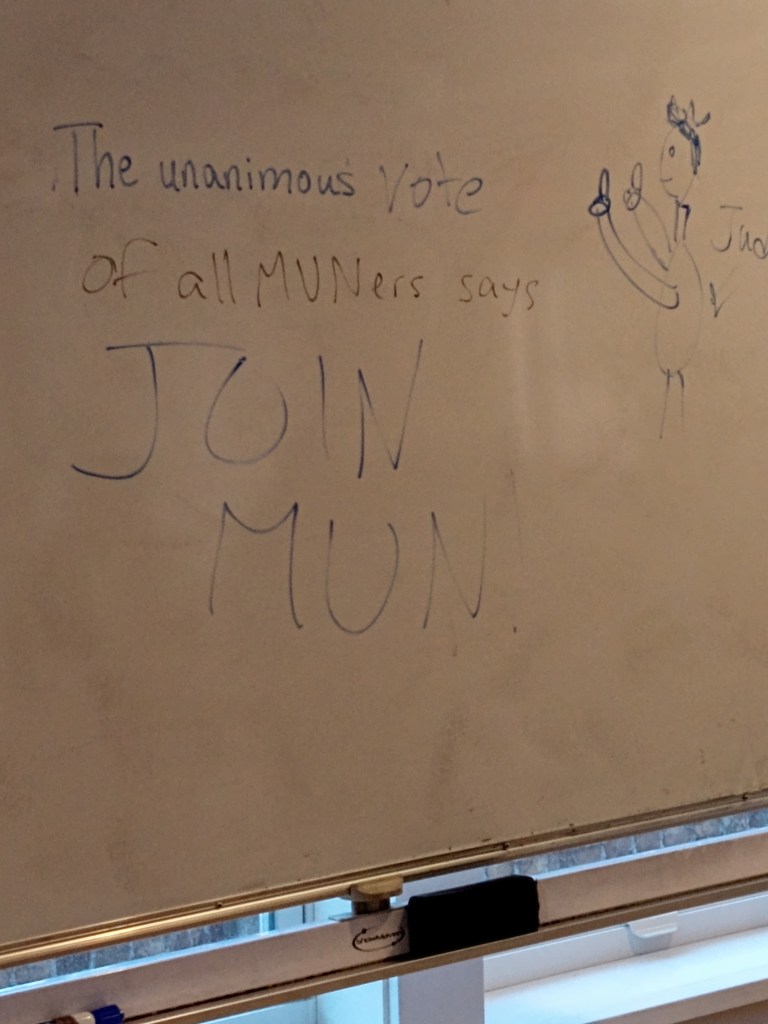 The unanimous vote
of all MUNers says
JOIN
MUN!